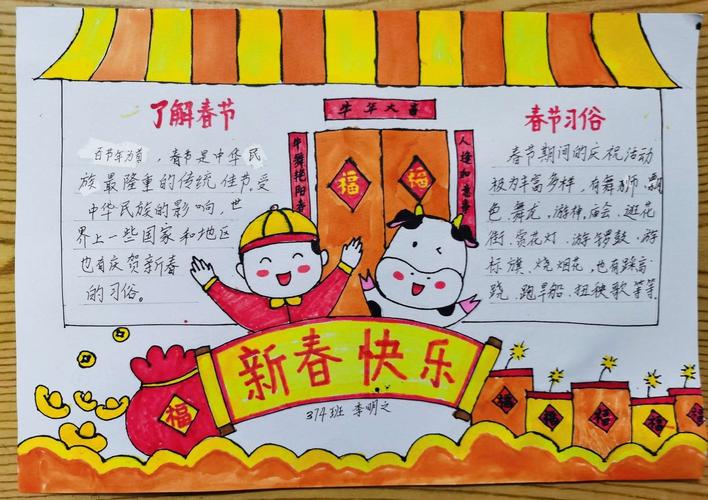 牛年大
了解春节
百节年为首，春节是中华民
族最隆重的传统佳节,受
中华民族的影响，世
界上一些国家和地区
也有庆贺新春
的习俗。
牛舞艳阳春
福
福
人逢如意
春节习俗
春节期间的庆祝活动
极为丰富多样，有舞狮、飘
色、舞龙、游神、庙会、逛花
街、赏花灯、游锣鼓、游
标旗、烧烟花、也有踩高
跷、跑旱船、扭秧歌等等.
新春快乐
福
374班 李明之
福
福
福
福
福